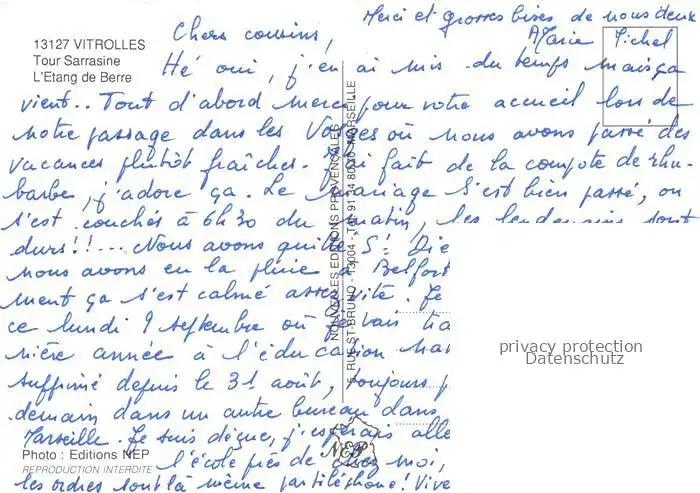 Merci et grosses bises de nous deux
Marie Michel
Chers cousins,
13127 VITROLLES
Tour Sarrasine
L'Etang de Berre
Hé oui, j'en ai mis du temps mais ça
vient.. Tout d'abord merci pour votre accueil lors de
notre passage dans les Vosges où nous avons passé des
vacances plutôt fraîches. J'ai fait de la compote de rhu-
barbe, j'adore ça. Le mariage s'est bien passé, on
s'est couchés à 6h30 du matin, les lendemains sont
durs!!... Nous avons quitté St. Dié
nous avons eu la pluie à Belfort
ment ça s'est calmé assez vite. Je
ce lundi 9 septembre où je vais tra
nière année à l'éducation nat
supprimé depuis le 31 août, toujours p
demain dans un autre bureau dans
Marseille. Je suis déçue, j'espérais alle
l'école près de chez moi,
les ordres sont là même par téléphone! Vive
NOUVELLES EDITIONS PROVENÇALES
RUE ST-BRUNO - 13004 - MARSEILLE
NEP
Photo : Editions NEP
REPRODUCTION INTERDITE
privacy protection
Datenschutz